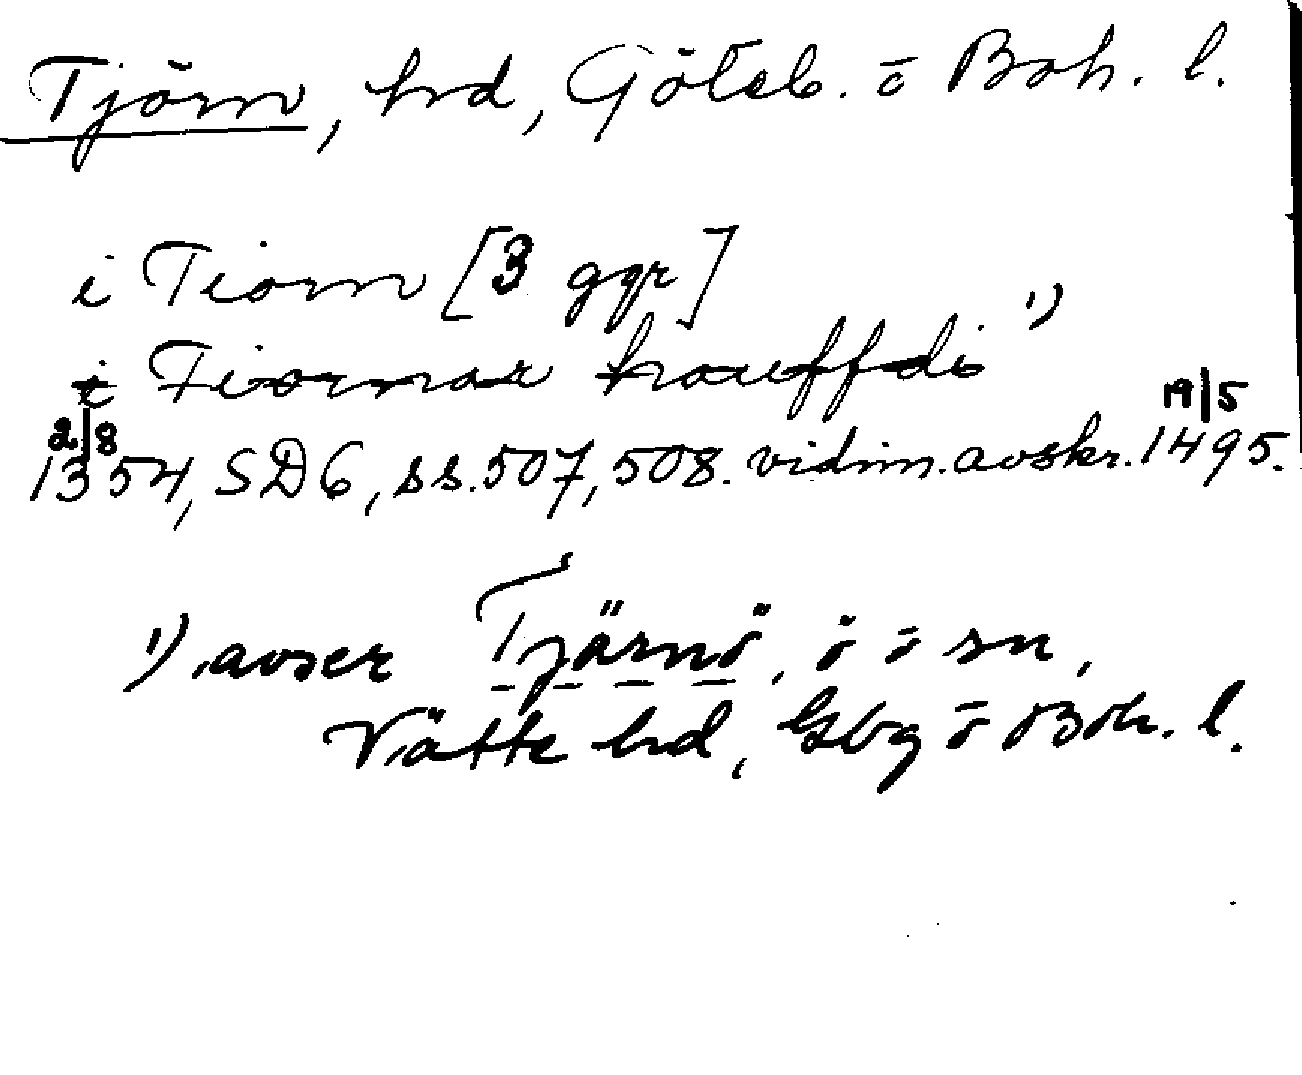 Tjörn, hrd, Göteb. o Boh. l.
i Tiorn [3 ggr]
i Tiornar houffdi 1)
2/8 19/5
1354, SD6, ss. 507, 508. vidim. avskr. 1495.
1) avser Tjärnö, ö o sn,
Vätte hrd, Gbg o Boh. l.